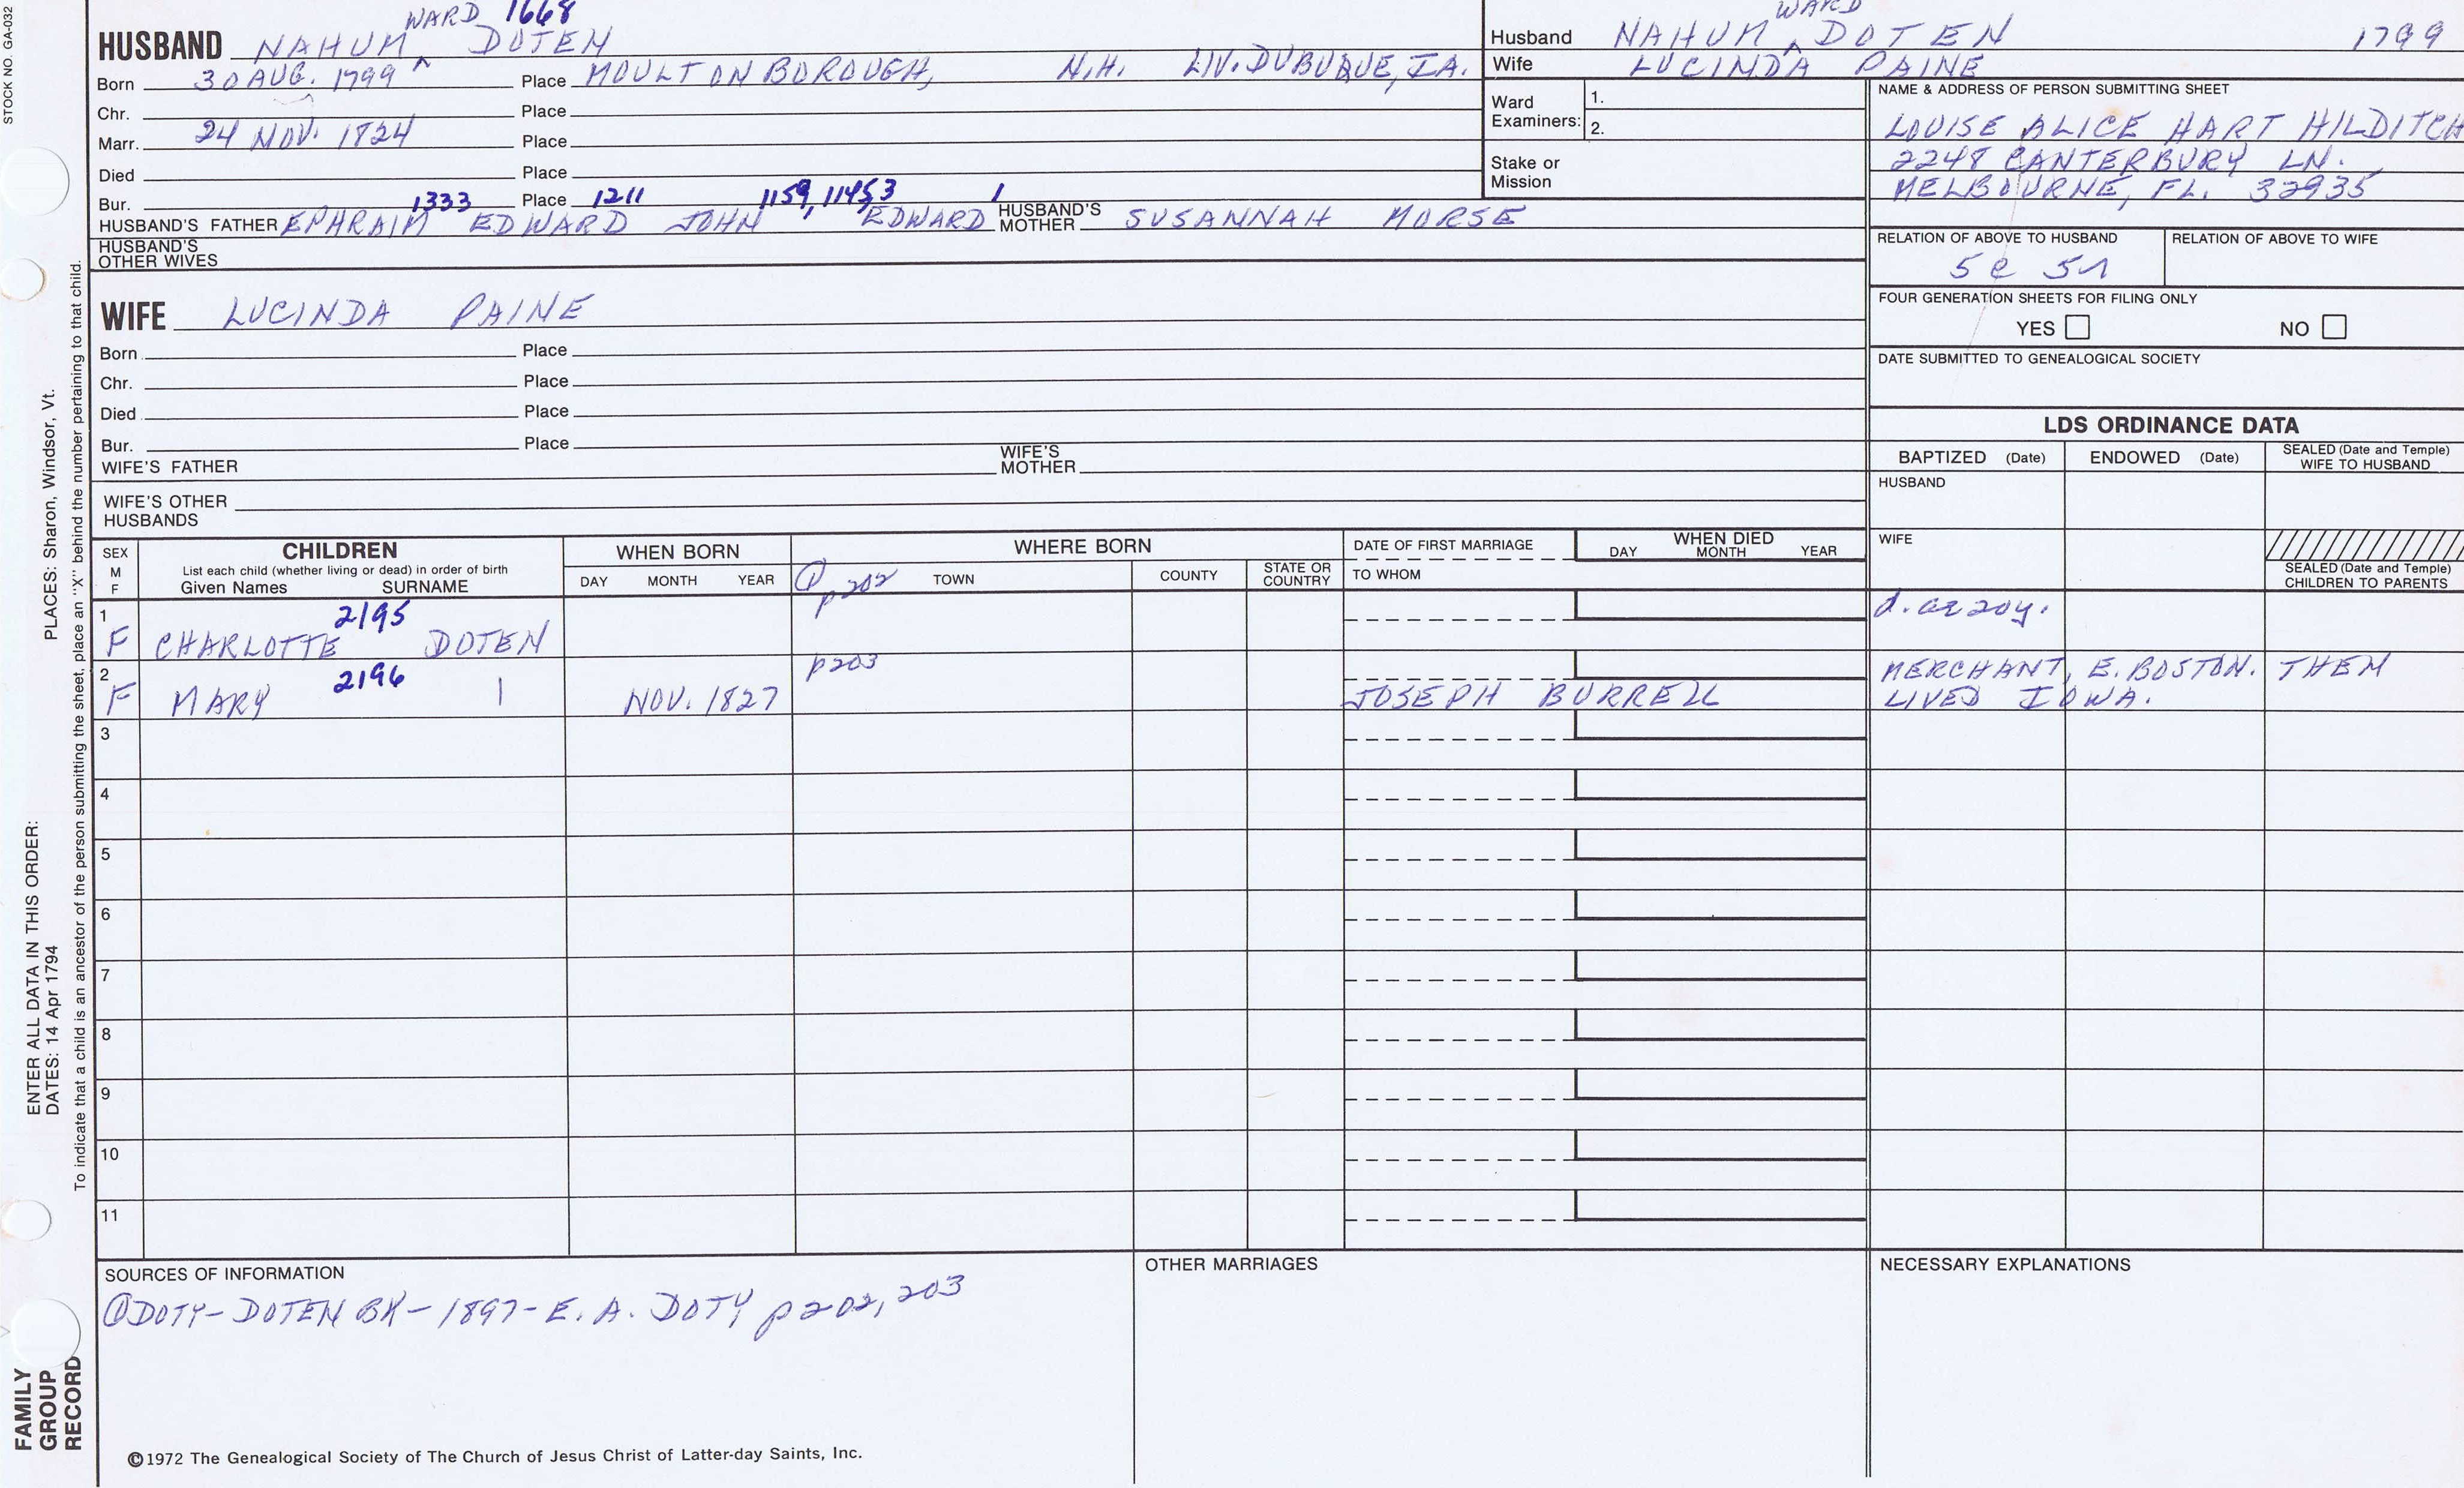 STOCK NO. GA-032
WARD 1668
HUSBAND NAHUM ^ DOTEN
Born 30 AUG. 1799 Place MOULTONBOROUGH, N.H. LIV. DUBUQUE, IA.
Chr. Place
Marr. 24 NOV. 1824 Place
Died Place
Bur. Place
1333 1211 1159, 11453 1
HUSBAND'S FATHER EPHRAIM EDWARD JOHN EDWARD HUSBAND'S MOTHER SUSANNAH MORSE
HUSBAND'S OTHER WIVES
WARD
Husband NAHUM ^ DOTEN 1799
Wife LUCINDA PAINE
Ward Examiners: 1.
2.
Stake or Mission
NAME & ADDRESS OF PERSON SUBMITTING SHEET
LOUISE ALICE HART HILDITCH
2248 CANTERBURY LN.
MELBOURNE, FL. 32935
RELATION OF ABOVE TO HUSBAND RELATION OF ABOVE TO WIFE
5C 5R
FOUR GENERATION SHEETS FOR FILING ONLY
YES NO
DATE SUBMITTED TO GENEALOGICAL SOCIETY
WIFE LUCINDA PAINE
Born Place
Chr. Place
Died Place
Bur. Place
WIFE'S FATHER WIFE'S MOTHER
WIFE'S OTHER HUSBANDS
LDS ORDINANCE DATA
BAPTIZED (Date) ENDOWED (Date) SEALED (Date and Temple) WIFE TO HUSBAND
HUSBAND
WIFE
SEALED (Date and Temple) CHILDREN TO PARENTS
SEX M F
CHILDREN
List each child (whether living or dead) in order of birth
Given Names SURNAME
WHEN BORN
DAY MONTH YEAR
WHERE BORN
① p202 TOWN COUNTY STATE OR COUNTRY
DATE OF FIRST MARRIAGE
TO WHOM
WHEN DIED
DAY MONTH YEAR
1 2195 d. ae 20y.
F CHARLOTTE DOTEN
2 2196 p203 MERCHANT, E. BOSTON. THEM
F MARY | NOV. 1827 JOSEPH BURRELL LIVED IOWA.
3
4
5
6
7
8
9
10
11
SOURCES OF INFORMATION
① DOTY-DOTEN BK-1897-E. A. DOTY p202, 203
OTHER MARRIAGES
NECESSARY EXPLANATIONS
©1972 The Genealogical Society of The Church of Jesus Christ of Latter-day Saints, Inc.
ENTER ALL DATA IN THIS ORDER:
DATES: 14 Apr 1794 PLACES: Sharon, Windsor, Vt.
To indicate that a child is an ancestor of the person submitting the sheet, place an "X" behind the number pertaining to that child.
FAMILY
GROUP
RECORD